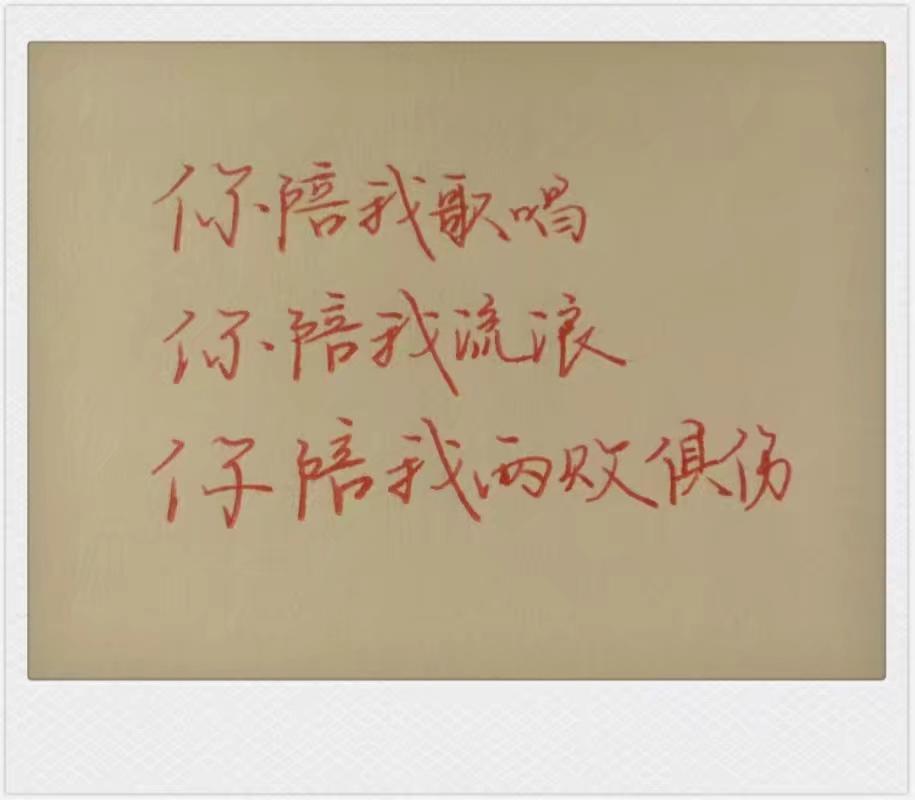 你陪我歌唱
你陪我流浪
你陪我两败俱伤